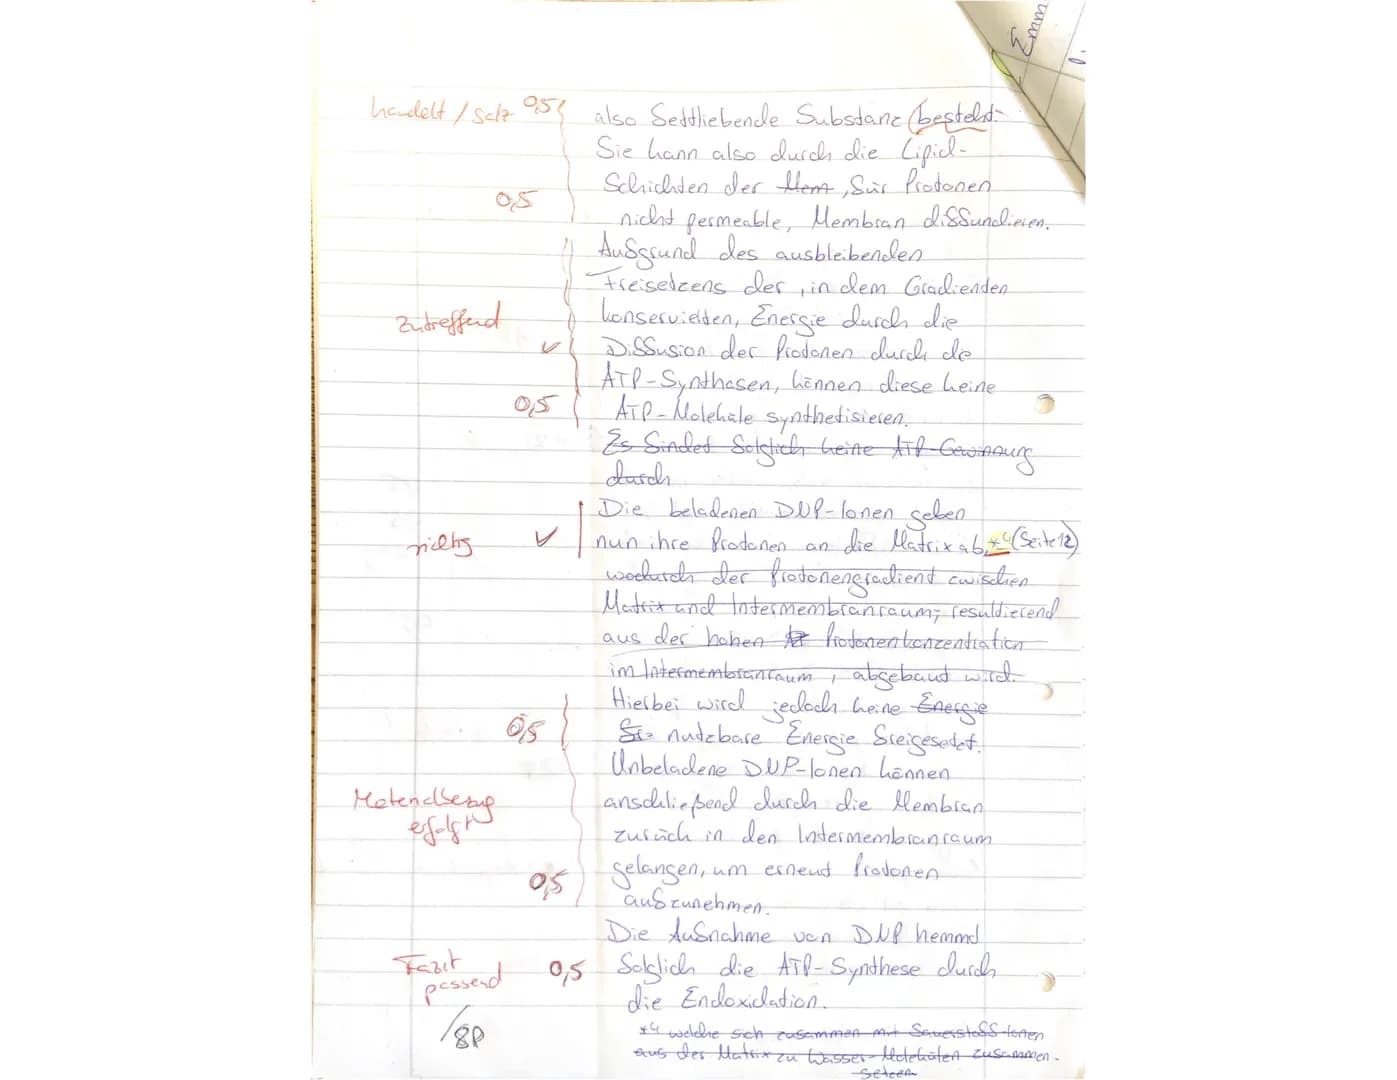 Emm
handelt / Satz 0,5 also Fettliebende Substanz besteht.
Sie kann also durch die Lipid-
schichten der Mem, für Protonen
0,5 nicht permeable, Membran diffundieren.
Aufgrund des ausbleibenden
Freisetzens der, in dem Gradienden
Zutreffend konservierten, Energie durch die
✓ Diffusion der Protonen durch de
ATP-Synthasen, können diese keine
0,5 ATP-Moleküle synthetisieren.
Es findet folglich keine ATP-Gewinnung
durch
Die beladenen DNP-Ionen geben
richtig ✓ nun ihre Protonen an die Matrix ab, *4 (Seite 12)
wodurch der Protonengradient zwischen
Matrix und Intermembranraum, resultierend
aus der hohen Protonenkonzentration
im Intermembranraum, abgebaut wird.
Hierbei wird jedoch keine Energie
0,5 nutzbare Energie freigesetzt.
Unbeladene DNP-Ionen können
Materialbezug anschließend durch die Membran
erfolgt zurück in den Intermembranraum
gelangen, um erneut Protonen
0,5 aufzunehmen.
Die Aufnahme von DNP hemmd
Fazit passend 0,5 folglich die ATP-Synthese durch
die Endoxidation.
/8P *4 welche sich zusammen mit Sauerstoff-Ionen
aus der Matrix zu Wasser-Molekülen zusammen-
setzen